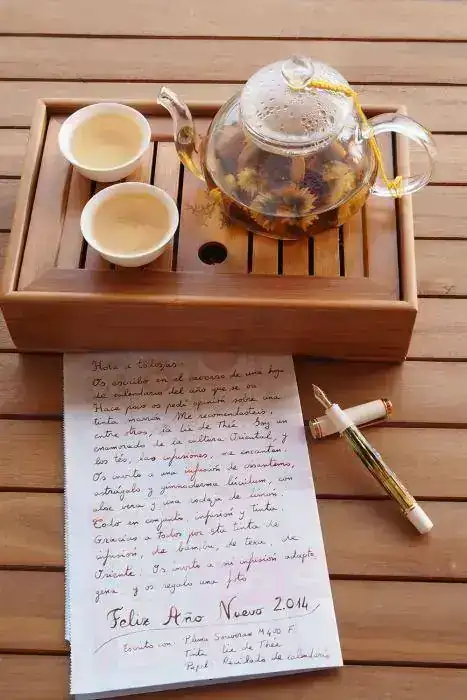 Hola a todos/as:
Os escribo en el reverso de una hoja
de calendario del año que se va
Hace poco os pedí opinión sobre una
tinta marrón. Me recomendasteis,
entre otras, la Lie de Thé. Soy un
enamorado de la cultura Oriental, y
los tés, las infusiones, me encantan.
Os invito a una infusión de crisantemo,
astrágalo y ginnoderma lúcidum, con
aloe vera y una rodaja de limón.
Todo en conjunto, infusión y tinta.
Gracias a todos por esta tinta de
infusión, de bambú, de teca, de
Oriente. Os invito a mi infusión adapto_
gena y os regalo una foto
Feliz Año Nuevo 2.014
Escrito con Pluma Souverän M400 F.
Tinta Lie de Thé
Papel Reciclado de calendario